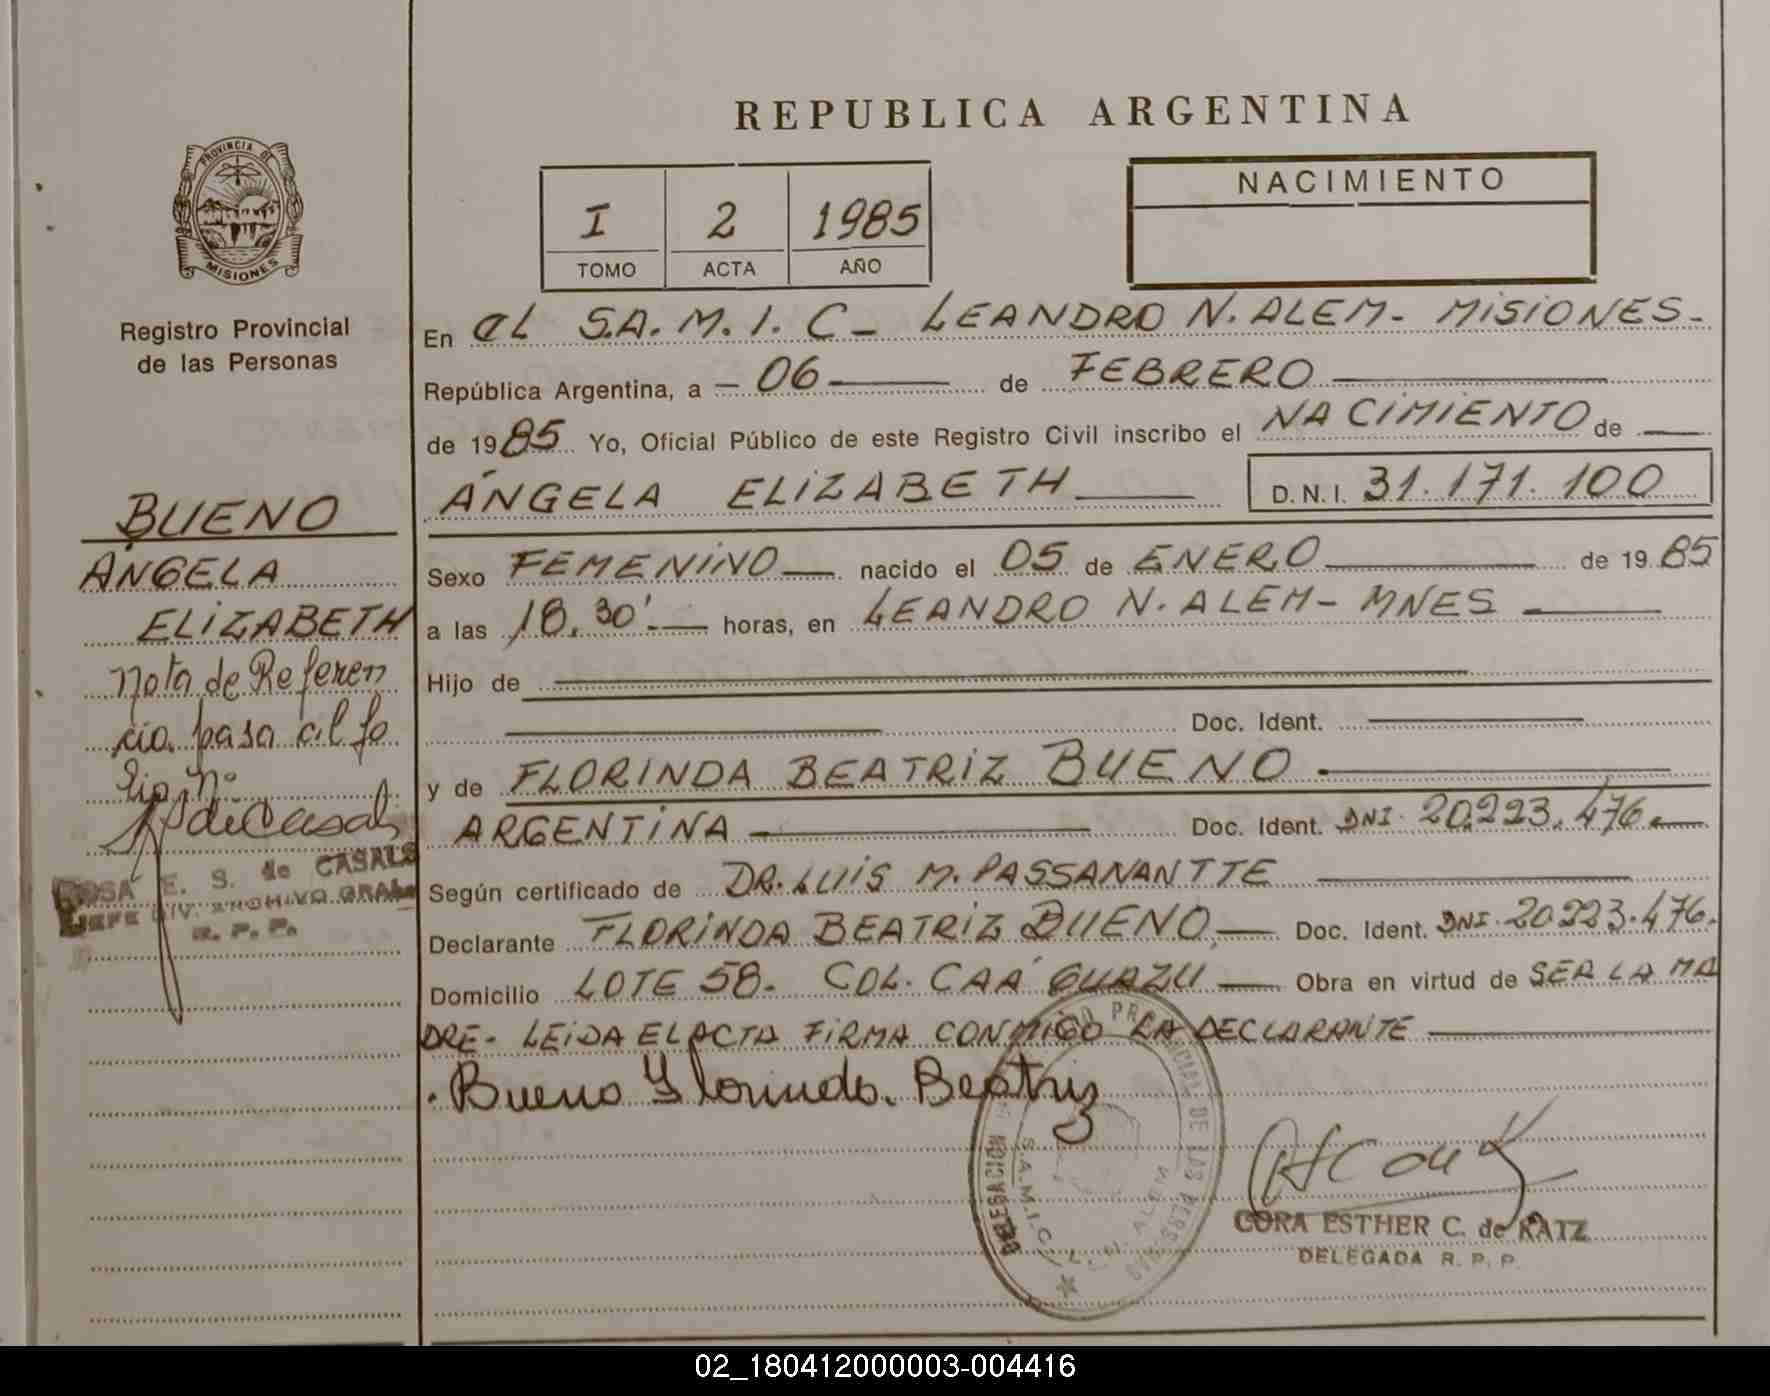 REPUBLICA ARGENTINA
PROVINCIA DE
MISIONES
Registro Provincial
de las Personas
I 2 1985
TOMO ACTA AÑO
NACIMIENTO
En el S.A.M.I.C- LEANDRO N. ALEM- MISIONES-
República Argentina, a - 06 de FEBRERO
de 1985 Yo, Oficial Público de este Registro Civil inscribo el NACIMIENTO de
ÁNGELA ELIZABETH D.N.I. 31.171.100
Sexo FEMENINO nacido el 05 de ENERO de 1985
a las 18,30' horas, en LEANDRO N. ALEM- MNES
Hijo de
Doc. Ident.
y de FLORINDA BEATRIZ BUENO
ARGENTINA Doc. Ident. DNI. 20.223.476.
Según certificado de DR. LUIS M. PASSANANTTE
Declarante FLORINDA BEATRIZ BUENO, Doc. Ident. DNI. 20.223.476.
Domicilio LOTE 58. COL. CAÁ GUAZU Obra en virtud de SER LA MA
DRE- LEIDA EL ACTA FIRMA CONMIGO LA DECLARANTE
. Bueno Florinda. Beatriz
BUENO
ÁNGELA
ELIZABETH
Nota de Referen
cia pasa al fo
lio Nº
de Casals
ROSA E. S. de CASALS
JEFE DIV. ARCHIVO GRAL.
R. P. P.
PROVINCIAL DE LAS PERSONAS
DELEGACION
S.A.M.I.C.
L. N. ALEM
CORA ESTHER C. de KATZ
DELEGADA R. P. P.
02_180412000003-004416